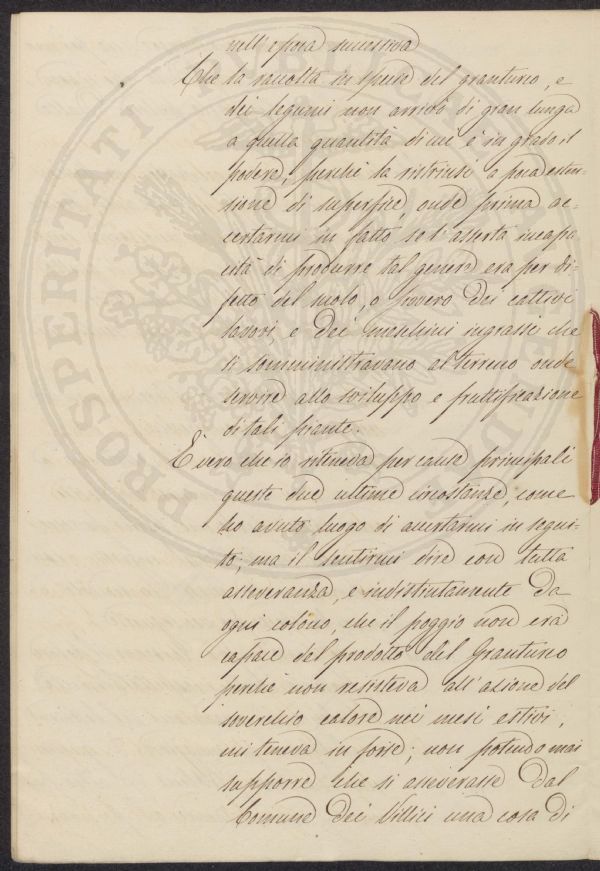 nell'epoca successiva
Che la raccolta in specie del granturco, e
dei legumi non arrivò di gran lunga
a quella quantità di cui è in grado il
podere, perchè la ristrinsi a poca esten-
sione di superfice, onde prima ac-
certarmi in fatto se l'asserta incapa
cità di produrre tal genere era per di-
fetto del suolo, o ovvero dei cattivi
lavori, e dei meschini ingrassi che
si somministravano al terreno onde
servire allo sviluppo e fruttificazione
di tali piante.
È vero che io riteneva per cause principali
queste due ultime circostanze, come
ho avuto luogo di accertarmi in segui-
to; ma il sentirmi dire con tutta
asseveranza, e indistintamente da
ogni colono, che il poggio non era
capace del prodotto del Granturco
perchè non resisteva all'azione del
soverchio calore nei mesi estivi,
mi teneva in forse; non potendo mai
supporre che si asseverasse dal
Comune dei Villici una cosa di
PROSPERITATI